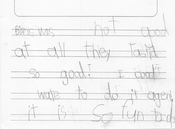 was not good
at all they
so good! I
wate to do it agen
it is So fun